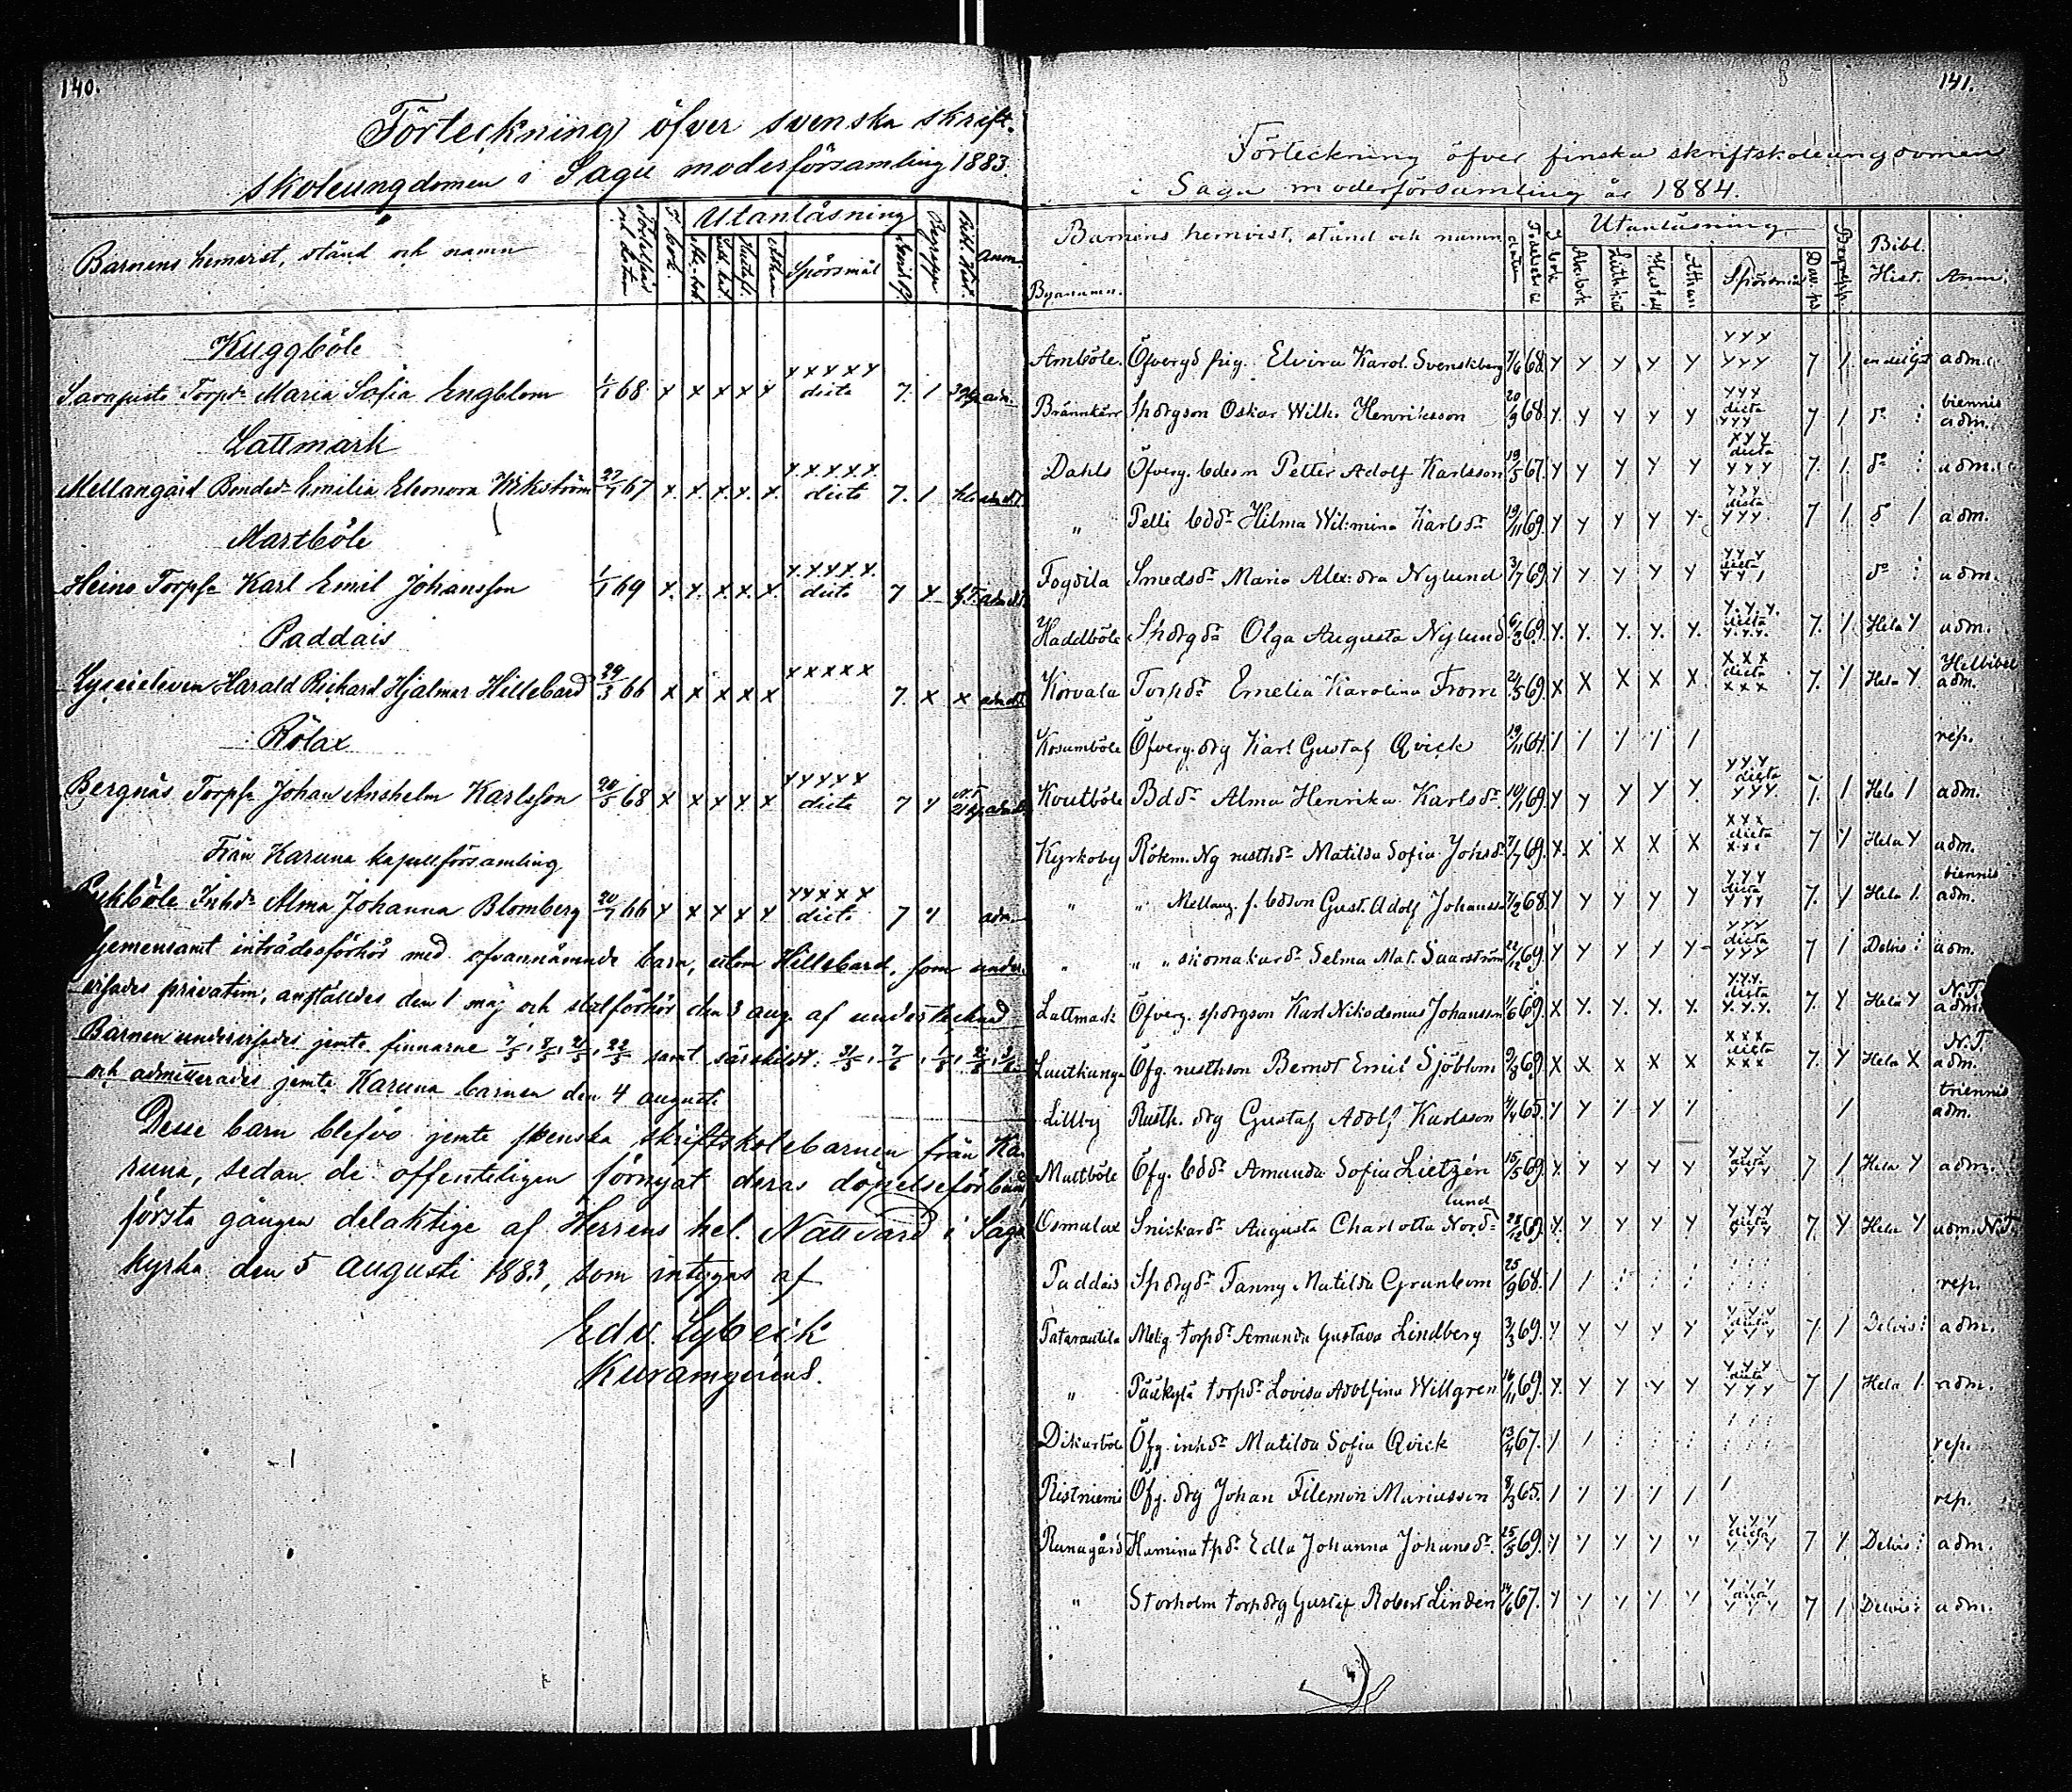 140.
Förteckning öfver svenska skrift-
skoleungdomen i Sagu moderförsamling 1883.
Barnens hemvist, stånd och namn
I bok. Utanläsning Spörsmål Begrepp Bibl. Hist. Anm.
Kuggböle
Torpdr Maria Sofia Engblom 1/1 68 x x x x x x x x x x dicta 7. 1
Lattmark
Mellangård Bondedr Emilia Eleonora Wikström 27/7 67 x. x. x. x. x. x x x x x. dicta 7. 1
Martböle
Heino Torpse Karl Emil Johansson 1/1 69 x. x. x. x. x. x x x x x. dicta 7 x
Paddais
Lyceieleven Harald Richard Hjalmar Hillebard 29/3 66 x x x x x x x x x x 7. x x
Rölax
Bergnäs Torpse Johan Anshelm Karlsson 20/5 68 x x x x x x x x x x dicta 7 x
Från Karuna kapellförsamling
Inhdr Alma Johanna Blomberg 20/7 66 x x x x x x x x x x dicta 7 x adm.
Gemensamt inträdesförhör med ofvannämnde barn, utom Hillebard, som under-
visades privatim, anställdes den 1 maj och slutförhör den 3 aug. af undertecknad
Barnen undervisades jemte finnarne samt särskildt
och admitterades jemte Karuna barnen den 4 augusti
Desse barn blefvo jemte svenska skriftskolebarnen från Ka-
runa, sedan de offentligen förnyat deras döpelseförbund
första gången delaktige af Herrens hel. Nattvard i Sagu
kyrka den 5 augusti 1883, som intygas af
Edv. Lybeck
141.
Förteckning öfver finska skriftskoleungdomen
i Sagu moderförsamling år 1884.
Barnens hemvist, stånd och namn Utanläsning Bibl.
Byanamn. Abcbok Athan Spörsmål Dav. ps Begrepp. Hist. Anm.
Amböle. Öfvergd pig. Elvira Karol. Svenskberg 7/6 68. x x x x x x x x x x x 7 1 adm.
Brännkärr Spdrgson Oskar Wilh. Henriksson 20/9 68. x. x x x x x x x dicta x x x 7 1 do biennis adm.
Dahls Öfverg. bdesn Petter Adolf Karlsson 19/5 67. x x x x x x x x dicta x x x 7. 1. do adm.
" Pelli bddr Hilma Wilmina Karlsdr 19/11 69. x x x x x x x x dicta x x x 7 1 adm.
Fogdila Smedsdr Maria Alex:dra Nylund 3/7 69. x x x x x x x x dicta do adm.
Haddböle Spdrgdr Olga Augusta Nylund 6/2 69. x. x. x. x. x. x. x. x. dicta x. x. x. 7. 1. Hela x adm.
Korvala Torpdr Emelia Karolina From 24/5 69. x x x x x. x x x dicta x x x 7. x Hela x. Helbibel adm.
Kosumböle Öfverg. drg Karl Gustaf Qvick 1 1 1 1 1 rep.
Koutböle Bddr Alma Henrika Karlsdr. 10/1 69. x x x x x x x x dicta x x x. 7. 1 Hela 1 adm.
Kyrkoby Rökm. Ng rusthdr Matilda Sofia Johsdr 7/7 69. x. x x x x x x x dicta x x x 7 x Hela x adm.
" " Mellang. f. bdson Gust. Adolf Johanss. 7/2 68. x x x x x x x x dicta x x x 7. x Hela 1. biennis adm.
" " " skomakardr Selma Mat. Saarström 22/12 69. x x x x x x x x dicta x x x 7 1 Delvis adm.
Lattmark Öfverg. spdrgson Karl Nikodemus Johansson 1/6 69. x x. x. x. x. x x x. dicta x. x. x. 7. x Hela x N.T. adm.
Öfg. rusthson Bernot Emil Sjöblom 9/8 69. x x x x x x x x dicta x x x 7. x Hela x N.T. adm.
Lillby Rusth. drg Gustaf Adolf Karlsson 4/4 65. 1 triennis adm.
Öfg. bddr Amanda Sofia Lietzén 15/5 69. x. x x x x x x x dicta x x x 7 1 Hela x adm.
Osmalax Snickardr Augusta Charlotta Nord-lund 28/12 69. x. x x x x x x x dicta x x x 7. x Hela x adm. N.T.
Paddais Spdrgdr Fanny Matilda Granbom 25/9 68. 1 1 rep.
Melig. torpdr Amanda Gustava Lindberg 3/3 69. x x x x x x x x dicta x x x 7 1 Delvis adm.
" torpdr Lovisa Adolfina Willgren 16/11 69. x. x x x x x x x dicta x x x 7 1 Hela 1. adm.
Dikarböle Öfg. inhdr Matilda Sofia Qvick 13/4 67. 1 1 rep.
Ristniemi Öfg. drg Johan Filemon Mariusson 8/3 65. rep.
Runagård Hamina tpdr Edla Johanna Johansdr. 25/5 69. x x x x x x x x dicta x x x 7 x Delvis adm.
" Storholm torpdrg Gustaf Robert Linden 14/6 67. x x x x x x x x dicta x x x 7 1 Delvis adm.